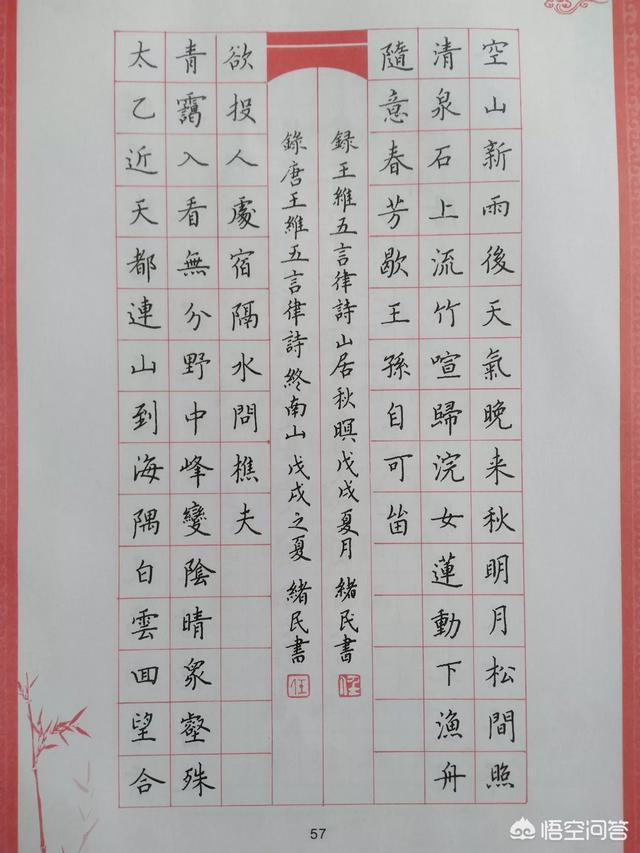 空山新雨後天氣晚来秋明月松間照
清泉石上流竹喧歸浣女蓮動下漁舟
隨意春芳歇王孫自可畄
録王維五言律詩山居秋暝戊戌夏月 緒民書
任
太乙近天都連山到海隅白雲囬望合
青靄入看無分野中峰變陰晴眾壑殊
欲投人處宿隔水問樵夫
錄唐王維五言律詩終南山戊戌之夏 緒民書
任
57
悟空问答